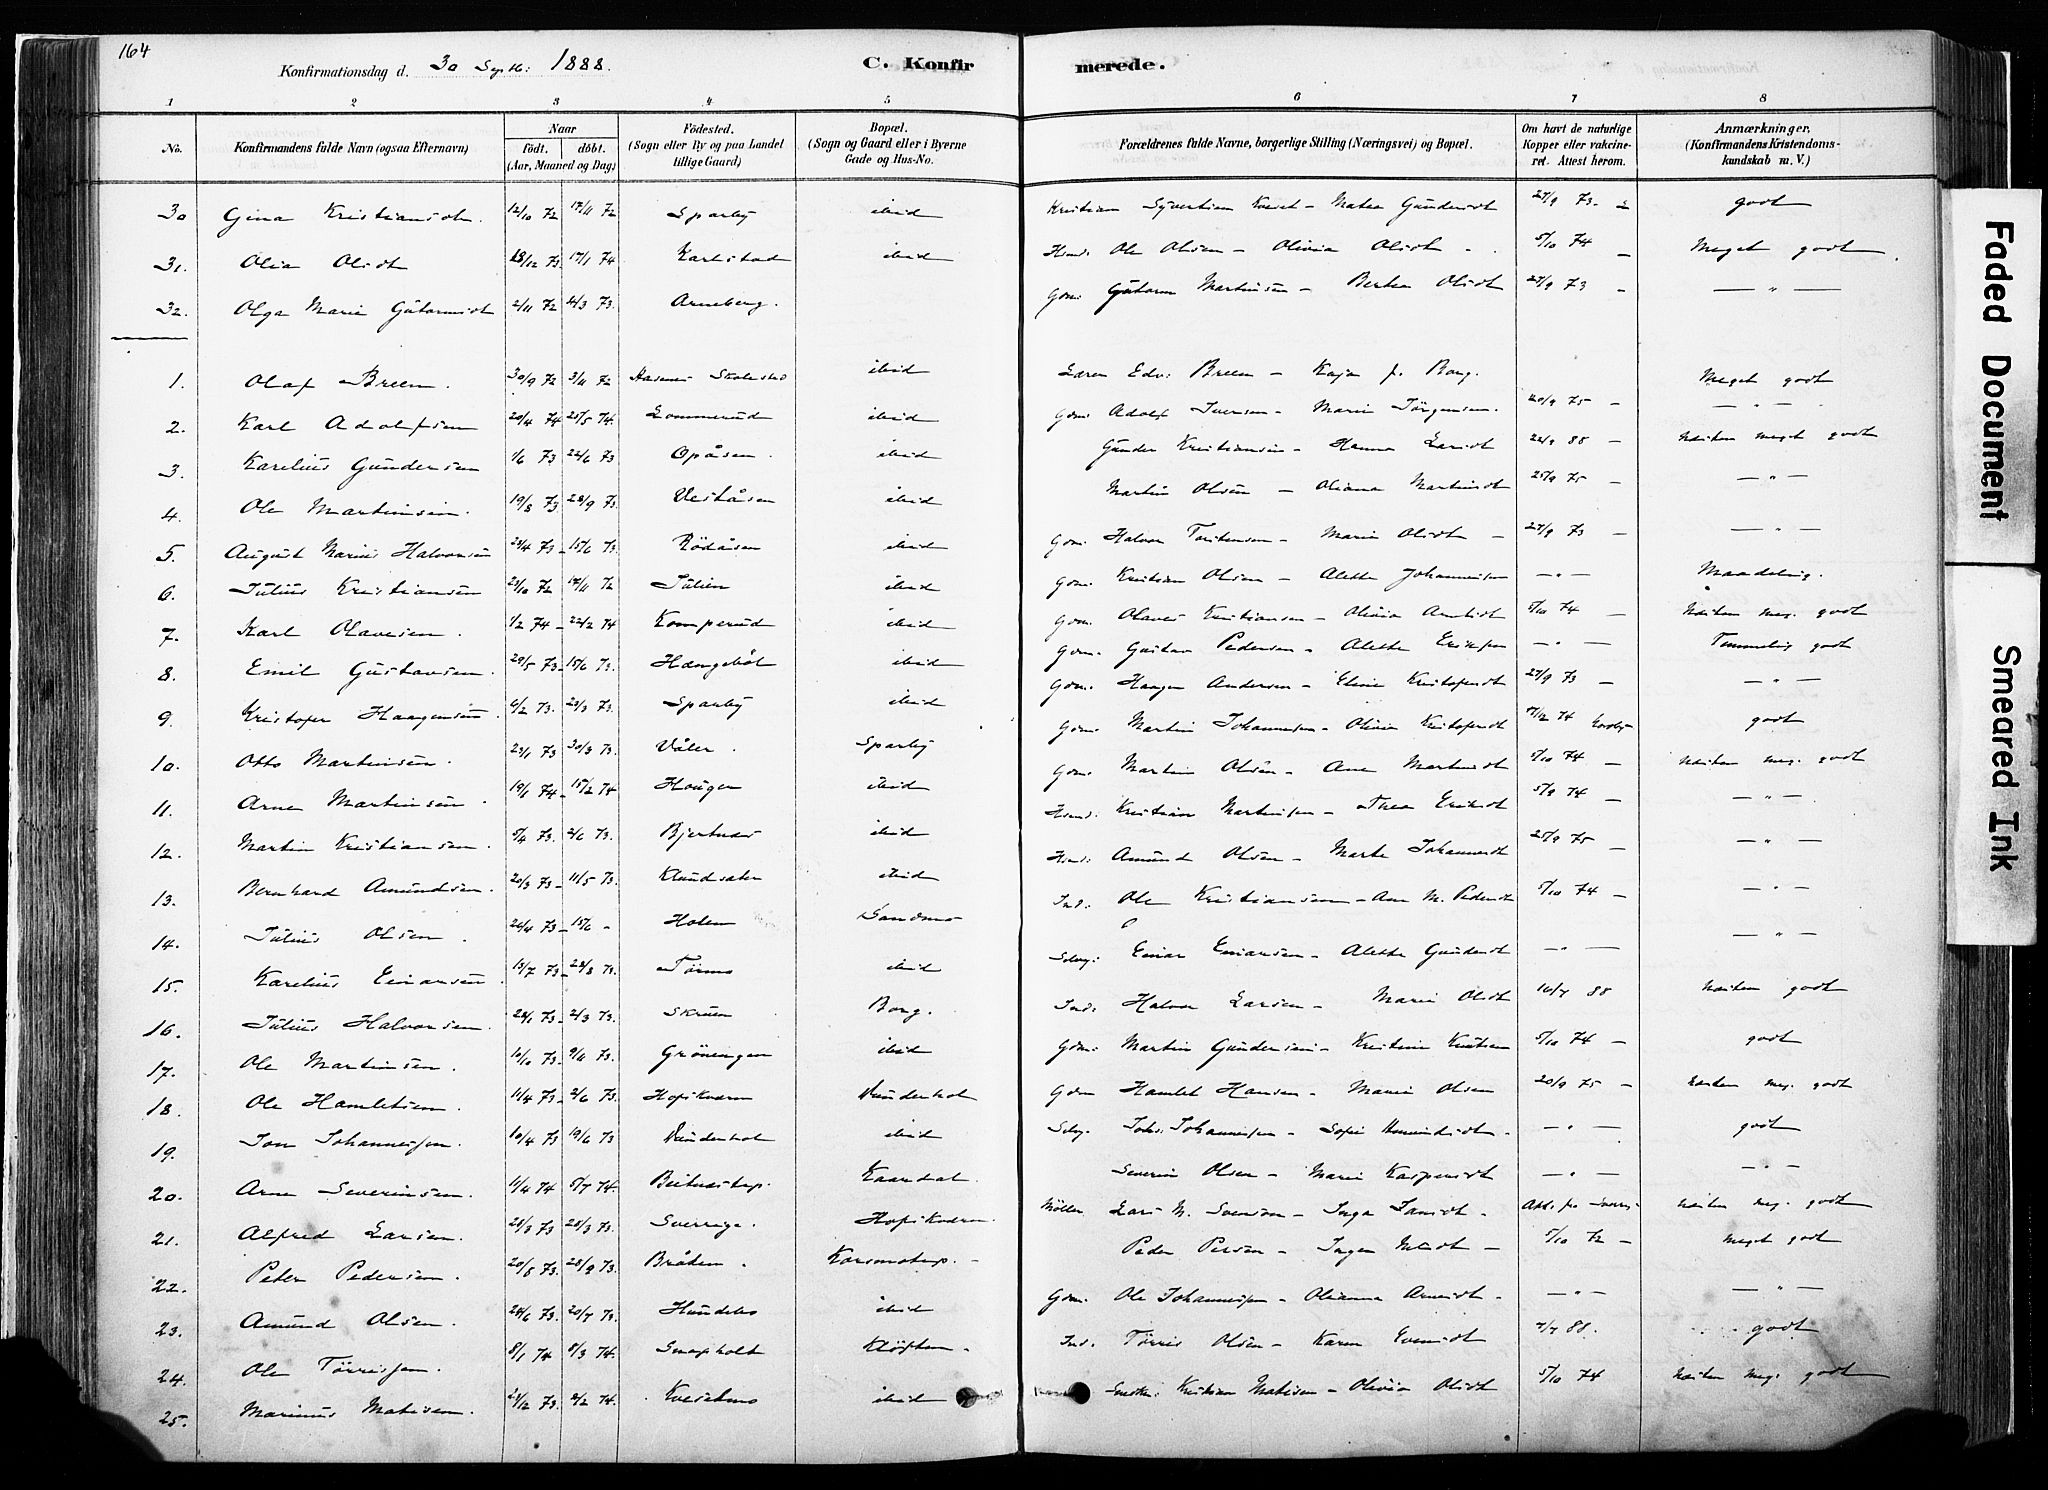 164
Konfirmationsdag d. 30 Septb: 1888.
C. Konfirmerede.
1 2 3 4 5 6 7 8
No. Konfirmandens fulde Navn (ogsaa Efternavn) Naar Født. døbt. (Aar, Maaned og Dag) Fødested. (Sogn eller By og paa Landet tillige Gaard) Bopæl. (Sogn og Gaard eller i Byerne Gade og Hus-No. Forældrenes fulde Navne, borgerlige Stilling (Næringsvei) og Bopæl. Om havt de naturlige Kopper eller vakcineret. Attest herom. Anmærkninger, (Konfirmandens Kristendomskundskab m. V.)
30 Gina Kristiansdt. 12/10 72 17/11 72 Sparby ibid Kristian Syvertsen - Matea Gundersdt 27/9 73 godt
31. Olia Olsdt 28/12 73. 17/1 74 Karlstad ibid Husm: Ole Olsen - Olivia Olsdt - 5/10 74 - Meget godt
32. Olga Marie Gutormsdt 2/11 72 4/3 73. Arneberg. Gdm: Gutorm Martinsen - Berthe Olsdt 27/9 73 - — " —
1. Olaf Breen. 30/9 72 3/11 72 Skolested ibid Lærer Edv: Breen - Kaja f. Borg. Meget godt
2. Karl Adolfsen 20/4 74 25/5 74. Lommerud ibid Gdm: Adolf Iversen - Marie Jörgensen. 20/9 75 - — " —
3. Karelius Gundersen 1/6 73 22/6 73 Opåsen. ibid Gunder Kristiansen - Hanna Larsdt 22/9 88 - Næsten meget godt
4. Ole Martinsen. 19/8 73 28/9 73. Veståsen ibid Martin Olsen - Oliana Martinsdt 25/9 75 - — " —
5. August Marius Halvorsen 23/4 73 - 15/6 73. Rödåsen ibid Gdm: Halvor Torstensen - Marie Olsdt - 27/9 73 - — " —
6. Julius Kristiansen 23/10 72 17/11 72 Julien ibid Gdm: Kristian Olsen - Alette Johannesen — " — Maadelig.
7. Karl Olavesen. 1/2 74 - 22/2 74 Komperud ibid Gdm. Olaves Kristiansen - Olivia Arntsdt 5/10 74 - Næsten meg. godt
8. Emil Gustavsen. 29/5 73 - 15/6 73. Hangeböl ibid Gdm: Gustav Pedersen - Alette Eriksen — " — Temmelig godt
9. Kristofer Haagensen 6/2 73. 23/3 73. Sparby ibid Gdm: Haagen Andersen - Eline Kristofersdt 27/9 73 - — " —
10. Otto Martinsen. 23/1 73 30/3 73. Våler. Sparby Gdm: Martin Johannesen - Olivia Kristofersdt 7/12 74 godt
11. Arne Martinsen. 19/1 74 - 15/2 74 Houger ibid Gdm: Martin Olsen - Ane Martinsdt 5/10 74 - Næsten meg. godt
12. Martin Kristiansen. 5/4 73. 2/6 73. Bjertnæs ibid Husmd: Kristian Martinsen - Thea Eriksdt 5/9 74 - — " —
13. Bernhard Amundsen. 20/3 73 - 11/5 73. Klundsæter ibid Husmd: Amund Olsen - Marte Johannesdt 25/9 75 - — " —
14. Julius Olsen. 26/4 73 - 15/6 - Holen Sandmo Ind: Ole Kristiansen - Ane M. Pedersdt 5/10 74 - — " —
15. Karelius Einarsen. 13/7 73 - 28/8 73. Törmo ibid Selvej: Einar Einarsen - Alette Gundersdt — " — — " —
16. Julius Halvorsen. 28/1 73 - 2/3 73. Skruen Borg. Ind: Halvor Larsen - Marie Olsdt 16/7 88 Næsten godt
17. Ole Martinsen. 10/10 73. 9/11 73. Gröningen ibid Gdm: Martin Gundersen - Kristine Knutsen 5/10 74 - godt
18. Ole Hamletsen. 11/4 73 - 2/6 73. Hofskvern Vunderhol Gdm Hamlet Hansen - Marie Olsen 20/9 75 - næsten meg. godt
19. Jon Johannessen. 10/4 73 19/6 73 Vunderhol ibid Selvej. Johs. Johannessen - Sofie Amundsdt - — " — godt
20. Arne Severinsen. 11/4 74 5/7 74. Kaardal. Severin Olsen - Marie Kaspersdt — " — — " —
21. Alfred Larsen. 28/3 73. Sverrige. Hofskvern. Möller Lars M. Svensen - Inga Jansdt - Att. fra Sverig. Næsten meg. godt
22. Peter Pedersen. 20/8 73. 28/9 73. Bråten. Karsmotorp. - Peder Persen - Inger - 5/10 72 - Meget godt
23. Amund Olsen. 28/6 73. 20/7 73. Hundebo ibid Gdm. Ole Johannessen - Olianna Arnesdt - — " — — " —
24. Ole Törrissen. 8/1 74 8/3 74. Smapholt Klöften - Ind. Törris Olsen - Karen Evensdt 7/7 88. godt
25. Marinus Matisen. 23/12 73. 2/2 74. Kvesetmo ibid Snedker: Kristian Matisen - Olivia Olsdt 5/10 74 Næsten meg. godt
Faded Document
Smeared Ink